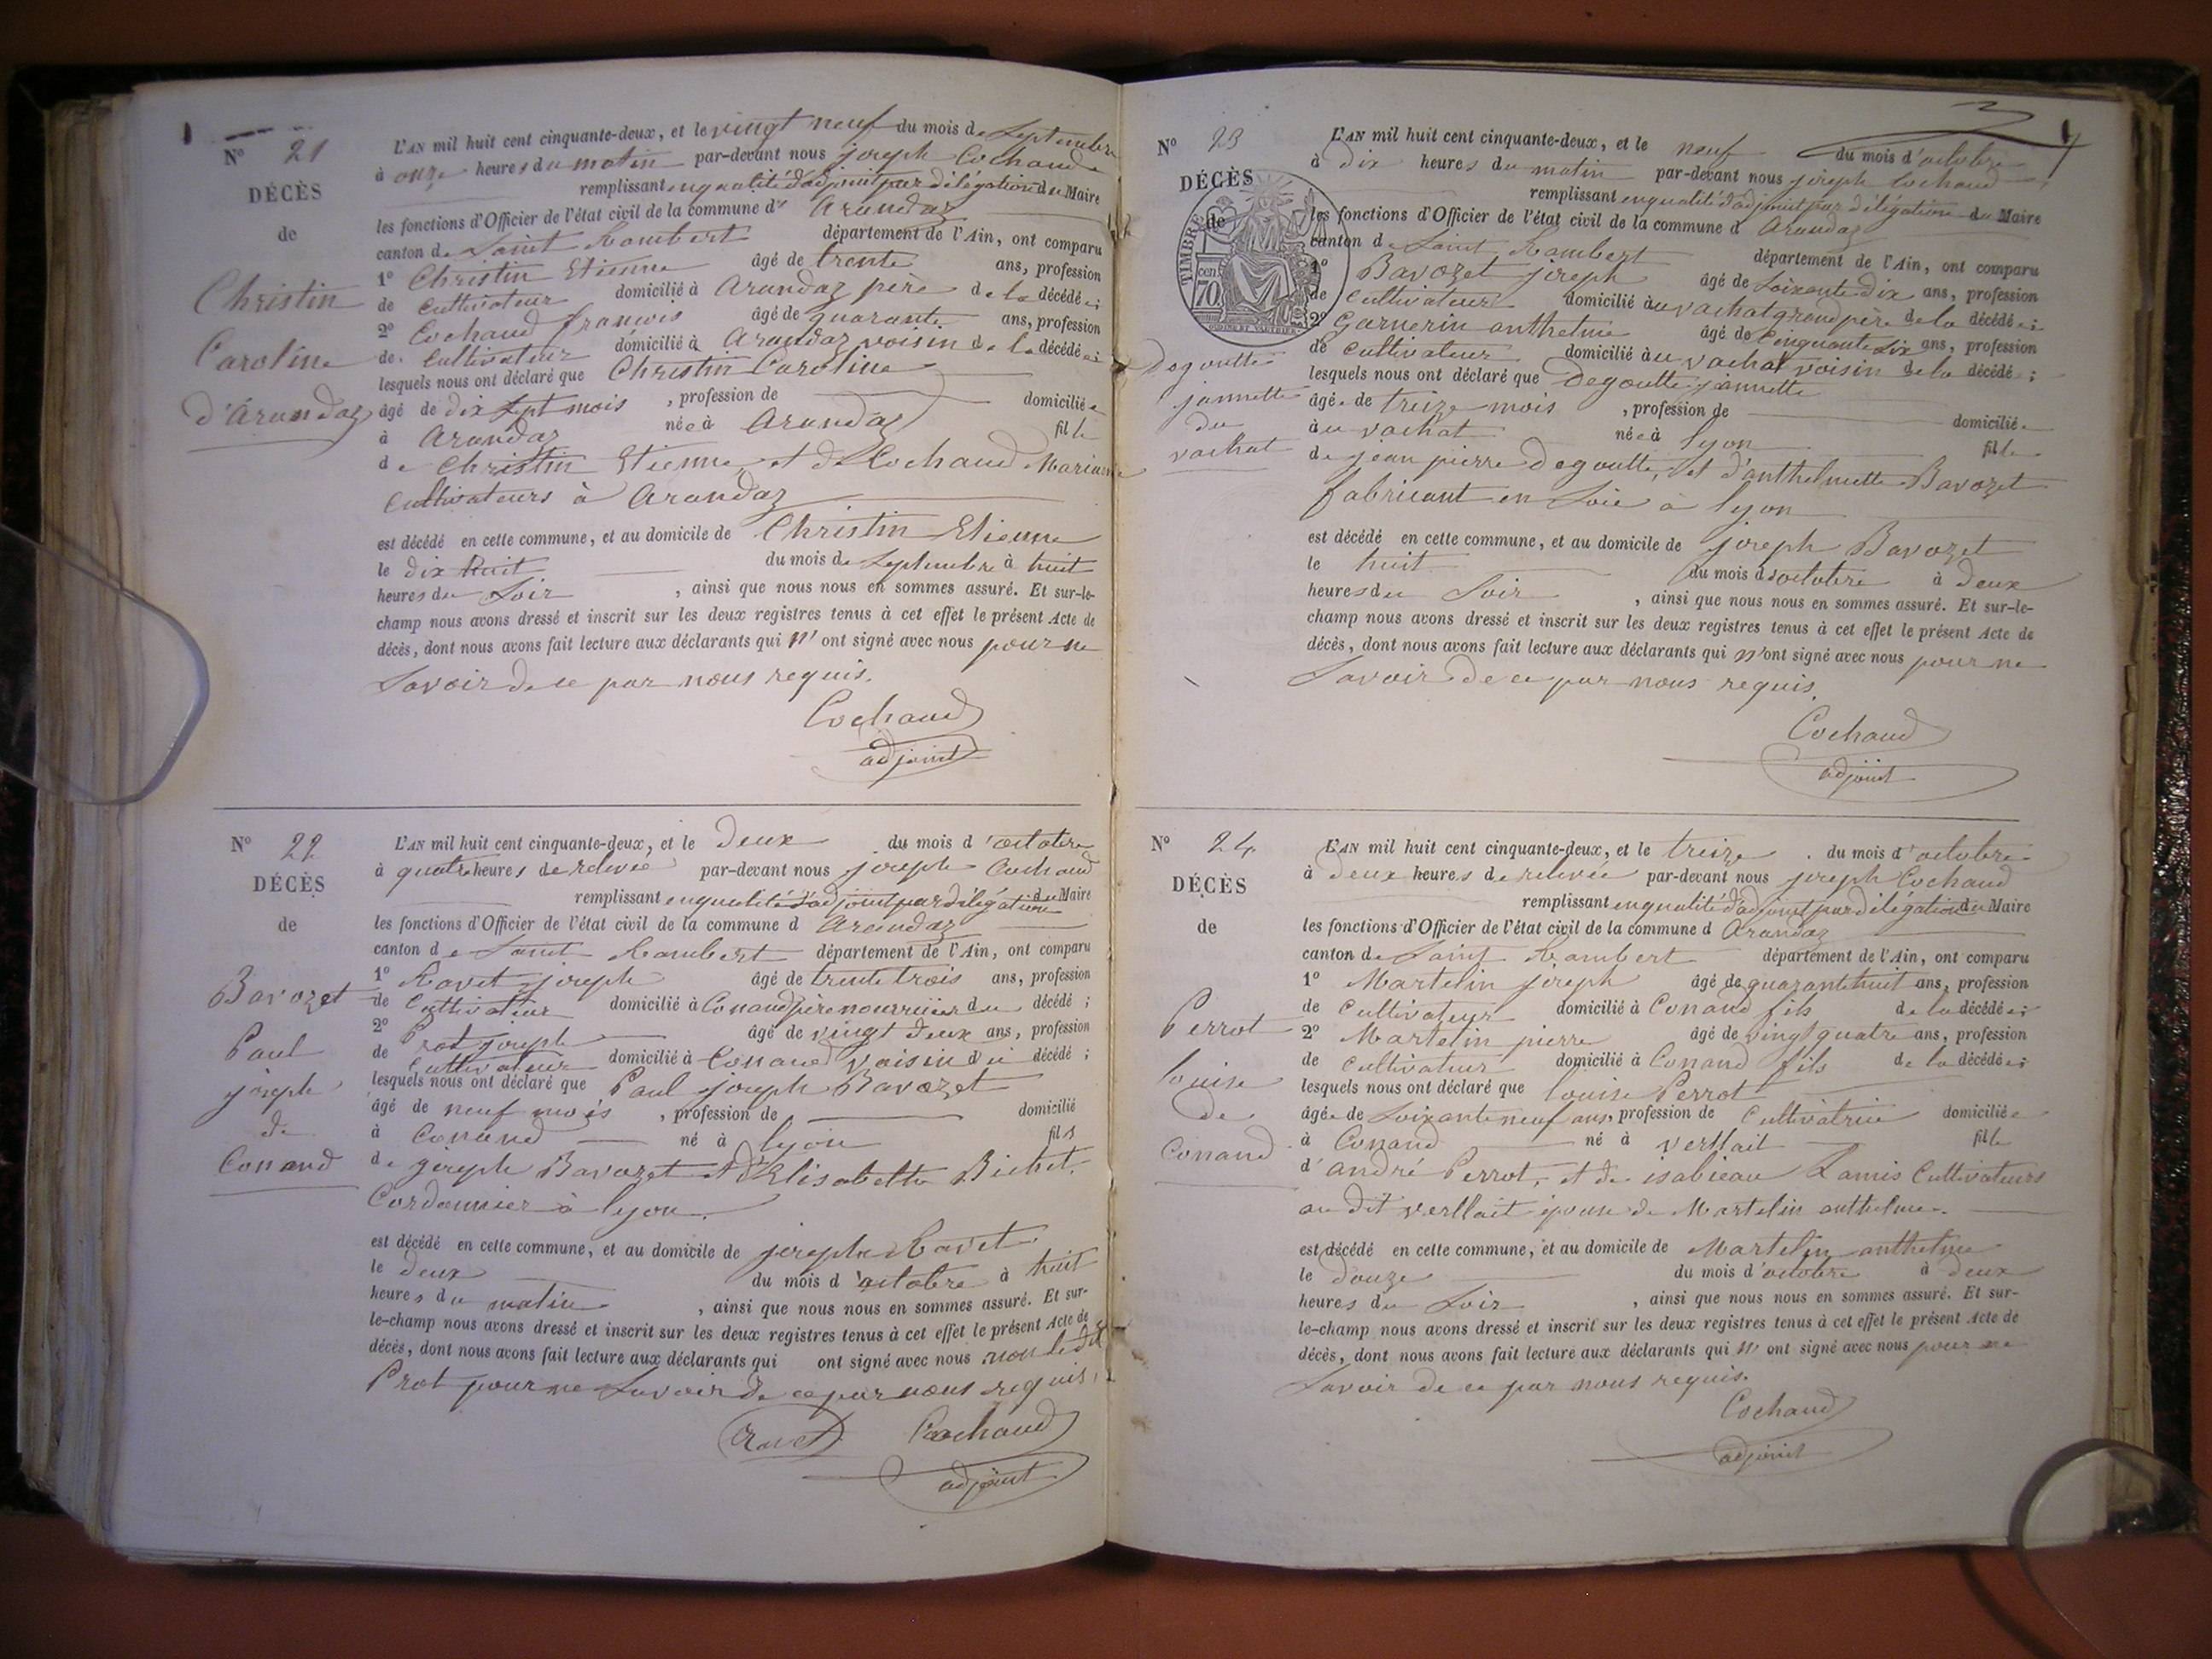 N° 21
DÉCÈS
de
Christin
Caroline
d'Arandaz
L'AN mil huit cent cinquante-deux, et le vingt neuf du mois de Septembre
à onze heures du matin par-devant nous joseph Cochaud
remplissant en qualité d'adjoint par délégation du Maire
les fonctions d'Officier de l'état civil de la commune d' Arandaz
canton de Saint Rambert département de l'Ain, ont comparu
1° Christin Etienne âgé de trente ans, profession
de Cultivateur domicilié à Arandaz père de la décédée;
2° Cochaud françois âgé de quarante ans, profession
de Cultivateur domicilié à Arandaz voisin de la décédée;
lesquels nous ont déclaré que Christin Caroline
âgé de dix sept mois , profession de domiciliée
à Arandaz née à Arandaz fille
de Christin Etienne et de Cochaud Marianne
Cultivateurs à Arandaz
est décédé en cette commune, et au domicile de Christin Etienne
le dix huit du mois de Septembre à huit
heures du Soir , ainsi que nous nous en sommes assuré. Et sur-le-
champ nous avons dressé et inscrit sur les deux registres tenus à cet effet le présent Acte de
décès, dont nous avons fait lecture aux déclarants qui n'ont signé avec nous pour ne
Savoir de ce par nous requis.
Cochaud
adjoint
N° 22
DÉCÈS
de
Bavozet
Paul
joseph
de
Conand
L'AN mil huit cent cinquante-deux, et le deux du mois d'octobre
à quatre heures de relevée par-devant nous joseph Cochaud
remplissant en qualité d'adjoint par délégation du Maire
les fonctions d'Officier de l'état civil de la commune d Arandaz
canton de Saint Rambert département de l'Ain, ont comparu
1° Ravet joseph âgé de trente trois ans, profession
de Cultivateur domicilié à Conand père nourricier du décédé;
2° Prot joseph âgé de vingt deux ans, profession
de Cultivateur domicilié à Conand voisin du décédé;
lesquels nous ont déclaré que Paul joseph Bavozet
âgé de neuf mois , profession de domicilié
à Conand né à lyon fils
de joseph Bavozet et d'Elisabette Bichet
Cordonnier à lyon.
est décédé en cette commune, et au domicile de joseph Ravet
le deux du mois d'octobre à huit
heures du matin , ainsi que nous nous en sommes assuré. Et sur-
le-champ nous avons dressé et inscrit sur les deux registres tenus à cet effet le présent Acte de
décès, dont nous avons fait lecture aux déclarants qui ont signé avec nous non le dit
Prot pour ne Savoir de ce par nous requis.
Ravet Cochaud
adjoint
N° 23
DÉCÈS
de
TIMBRE
70 cen
degoutte
jannette
du
vachat
L'AN mil huit cent cinquante-deux, et le neuf du mois d'octobre
à dix heures du matin par-devant nous joseph Cochaud
remplissant en qualité d'adjoint par délégation du Maire
les fonctions d'Officier de l'état civil de la commune d Arandaz
canton de Saint Rambert département de l'Ain, ont comparu
1° Bavozet joseph âgé de Soixante dix ans, profession
de Cultivateur domicilié au vachat grand père de la décédée;
2° Garnerin anthelme âgé de Cinquante Six ans, profession
de Cultivateur domicilié au vachat voisin de la décédé;
lesquels nous ont déclaré que degoutte jannette
âgée de treize mois , profession de domiciliée
au vachat née à lyon fille
de jean pierre degoutte, et d'anthelmette Bavozet
fabricant en Soie à lyon
est décédé en cette commune, et au domicile de joseph Bavozet
le huit du mois d'octobre à deux
heures du Soir , ainsi que nous nous en sommes assuré. Et sur-le-
champ nous avons dressé et inscrit sur les deux registres tenus à cet effet le présent Acte de
décès, dont nous avons fait lecture aux déclarants qui n'ont signé avec nous pour ne
Savoir de ce par nous requis.
Cochaud
adjoint
N° 24
DÉCÈS
de
Perrot
louise
de
Conand
L'AN mil huit cent cinquante-deux, et le treize du mois d'octobre
à deux heures de relevée par-devant nous joseph Cochaud
remplissant en qualité d'adjoint par délégation du Maire
les fonctions d'Officier de l'état civil de la commune d Arandaz
canton de Saint Rambert département de l'Ain, ont comparu
1° Martelin joseph âgé de quarante huit ans, profession
de Cultivateur domicilié à Conand fils de la décédée;
2° Martelin pierre âgé de vingt quatre ans, profession
de Cultivateur domicilié à Conand fils de la décédée;
lesquels nous ont déclaré que louise Perrot
âgée de Soixante neuf ans, profession de Cultivatrice domiciliée
à Conand né à verllait fille
d'andré Perrot, et de isabeau Lamis Cultivateurs
au dit verllait épouse de Martelin anthelme.
est décédé en cette commune, et au domicile de Martelin anthelme
le douze du mois d'octobre à deux
heures du Soir , ainsi que nous nous en sommes assuré. Et sur-
le-champ nous avons dressé et inscrit sur les deux registres tenus à cet effet le présent Acte de
décès, dont nous avons fait lecture aux déclarants qui n'ont signé avec nous pour ne
Savoir de ce par nous requis.
Cochaud
adjoint